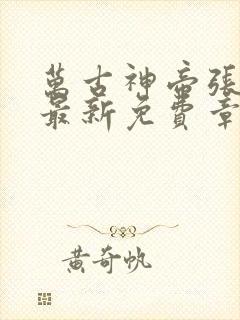 萬古神帝張
最新免費章
黃奇帆